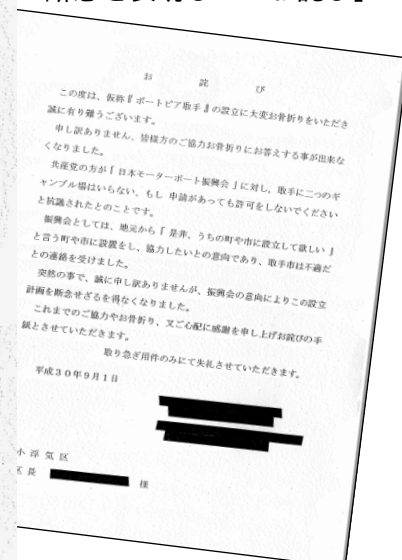 お 詫 び
この度は、仮称『ボートピア取手』の設立に大変お骨折りをいただき
誠に有り難うございます。
申し訳ありません、皆様方のご協力お骨折りにお答えする事が出来な
くなりました。
共産党の方が「日本モーターボート振興会」に対し、取手に二つのギ
ャンブル場はいらない、もし 申請があっても許可をしないでください
と抗議されたとのことです。
振興会としては、地元から「是非、うちの町や市に設立して欲しい」
と言う町や市に設置をし、協力したいとの意向であり、取手市は不適だ
との連絡を受けました。
突然の事で、誠に申し訳ありませんが、振興会の意向によりこの設立
計画を断念せざるを得なくなりました。
これまでのご協力やお骨折り、又ご心配に感謝を申し上げお詫びの手
紙とさせていただきます。
取り急ぎ用件のみにて失礼させていただきます。
平成30年9月1日
小 浮 気 区
区 長 様